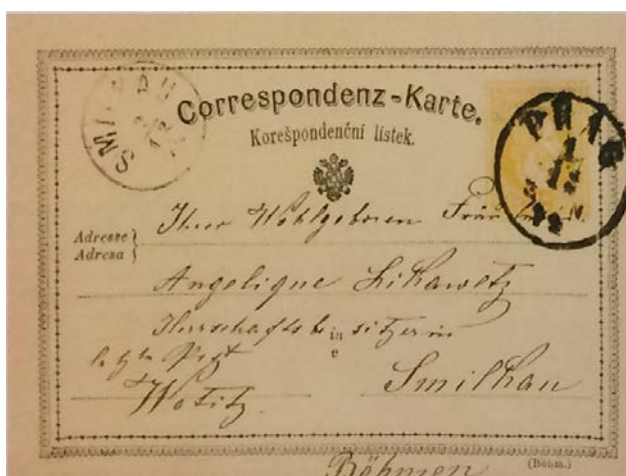 SMILKAU
Correspondenz-Karte.
Korešpondenční lístek.
PRAG
Adresse
Adresa
Ihrer Wohlgeboren Fräulein
Angelique Likawetz
Herrschaftsbesitzerin
in
v
letzte Post
Wotitz.
Smilkau
Böhmen
(Böhm.)